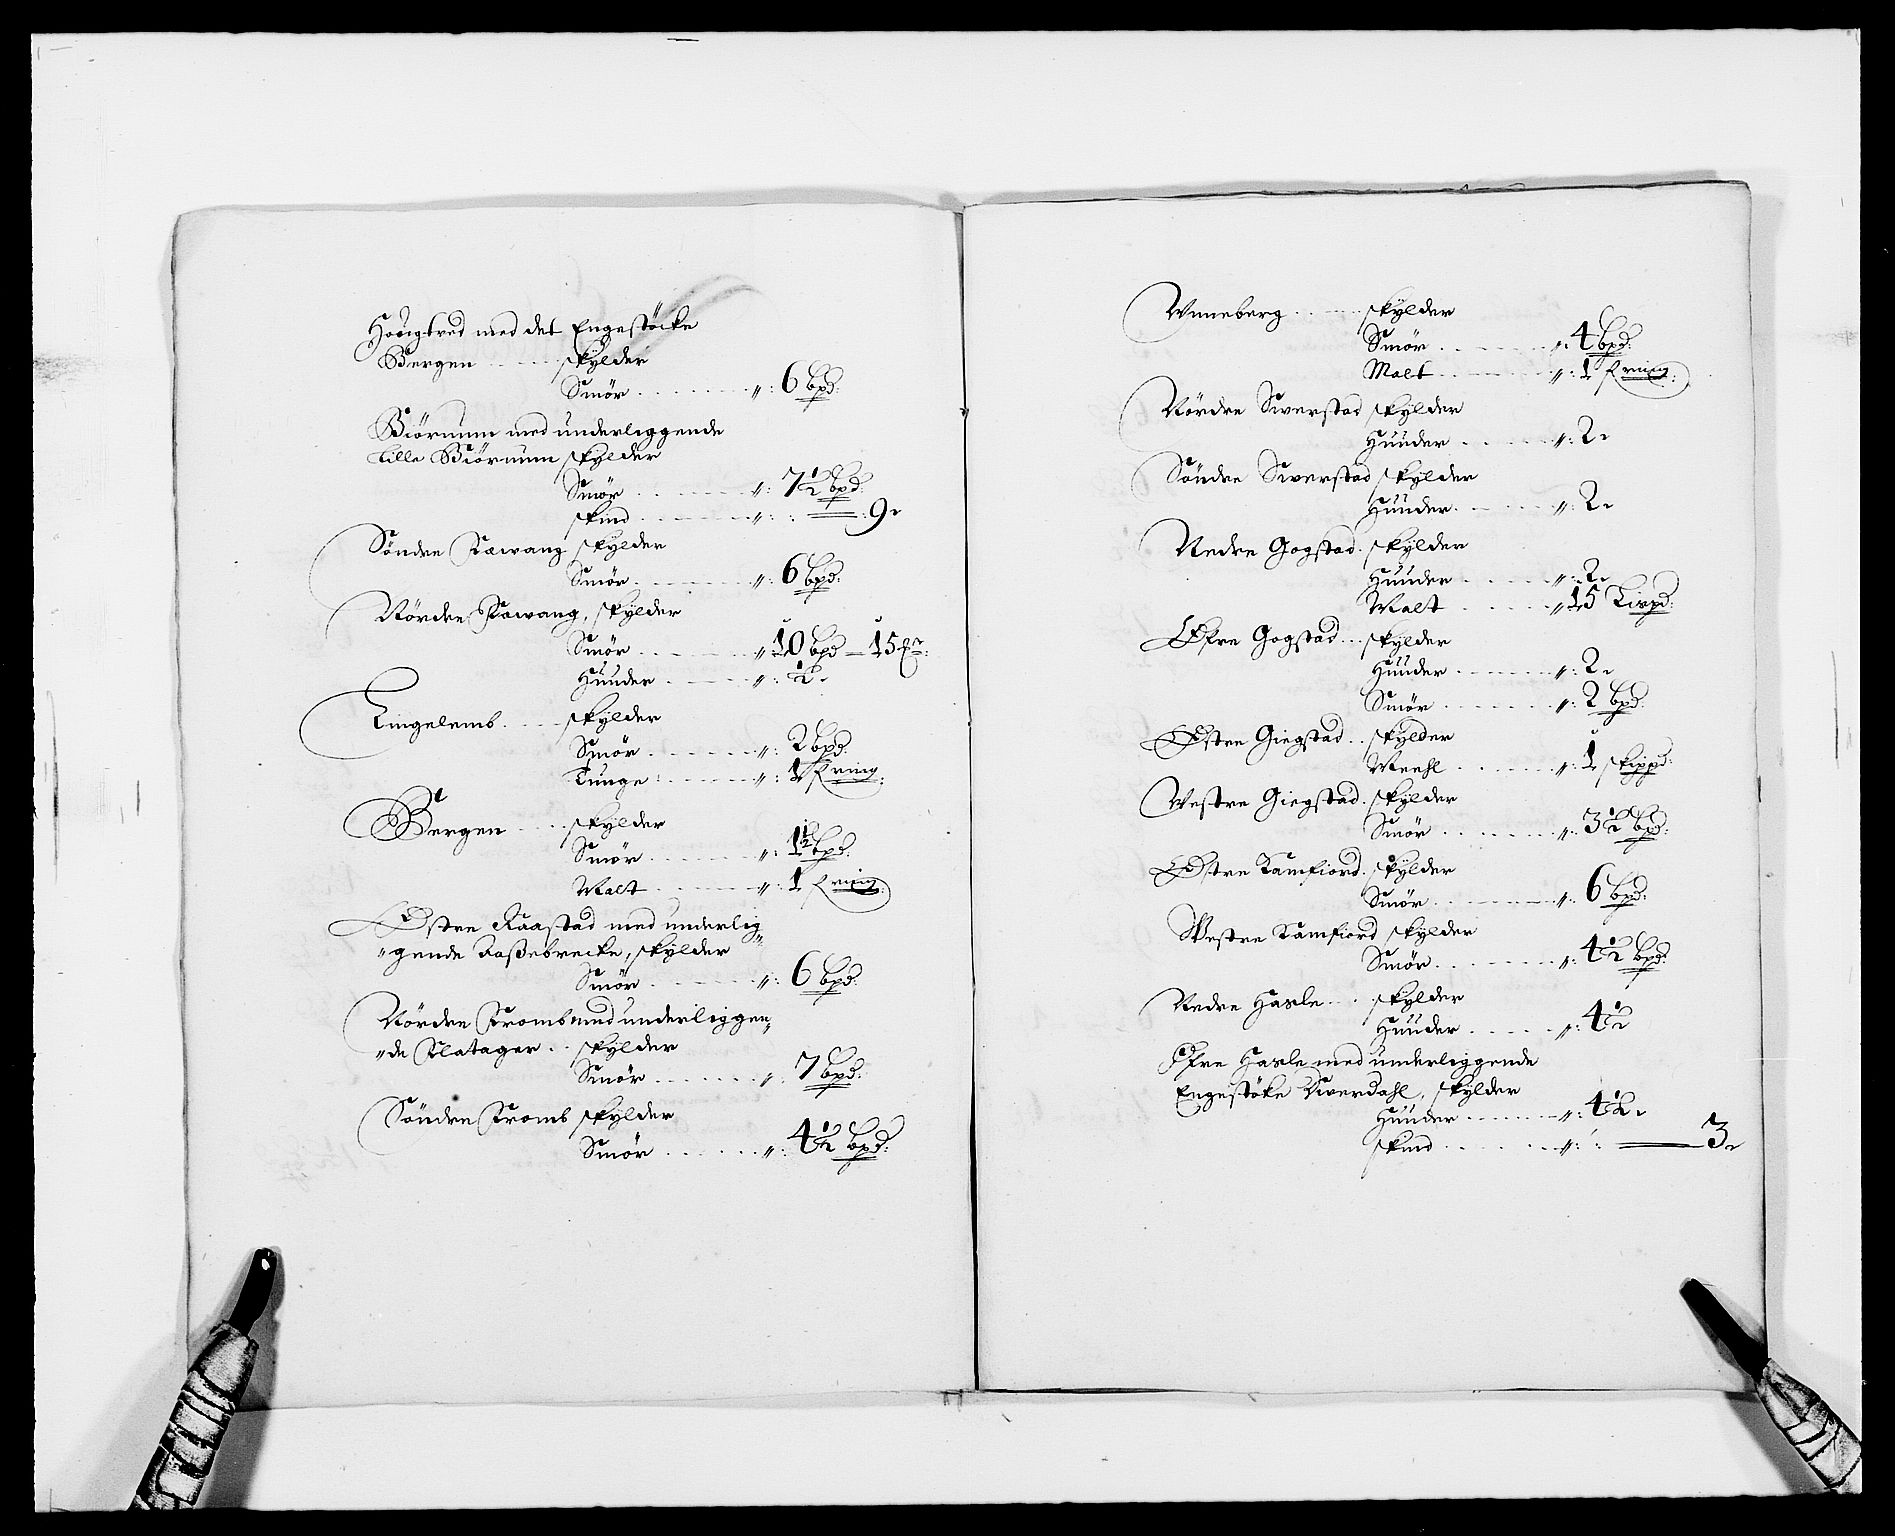 Hougtved med det Engestöcke
Bergen . . . . skylder
Smör . . . . . . . „: 6 bpd:
Biörnum med underliggende
Lille Biörnum skylder
Smör . . . . . . . „: 7½ bpd:
skind . . . . . . . „: : 9
Söndre Kawang skylder
Smör . . . . . . . „: 6 bpd:
Nördre Kawang, skylder
Smör . . . . . . . „ 10 bpd — 15
Huuder . . . . . . „: ½
Lingelemb . . . . skylder
Smör . . . . . . . „: 2 bpd:
Tunge : . . . . . . „: 1 fring:
Bergen . . . . skylder
Smör . . . . . . . „: 1½ bpd:
Malt . . . . . . . „: 1 fring:
Østre Raastad med underlig„
„gende Faßebrecke, skylder
Smör . . . . . . . „: 6 bpd:
Nördre Tromb med underliggen„
„de Klatager . . skylder
Smör . . . . . . . „: 7 bpd:
Söndre Tromb skylder
Smör . . . . . . . „: 4½ bpd:
Unneberg . . . . skylder
Smör . . . . . . . „: 4 bpd:
Malt . . . . . . . „: 1 fring:
Nördre Swerstad skylder
Huuder . . . . . . „: 2
Söndre Swerstad skylder
Huuder . . . . . . „: 2
Nedre Gogstad . skylder
Huuder . . . . . . „: 2
Malt . . . . . . . „ 15 Lispd:
Øfre Gogstad . . . skylder
Huuder . . . . . . „: 2
Smör . . . . . . . „: 2 bpd:
Østre Giegstad . . skylder
Meehl . . . . . . . „: 1 skippd:
Vestre Giegstad . skylder
Smör . . . . . . . „: 3½ bpd:
Østre Kamfiord . skylder
Smör . . . . . . . „: 6 bpd:
Westre Kamfiord skylder
Smör . . . . . . . „: 4½ bpd:
Nedre Hasle . . . skylder
Huuder . . . . . . „: 4½
Øfre Hasle med underliggende
Engestöke Swerdahl, skylder
Huuder . . . . . . „: 4½
skind . . . . . . . „: : 3